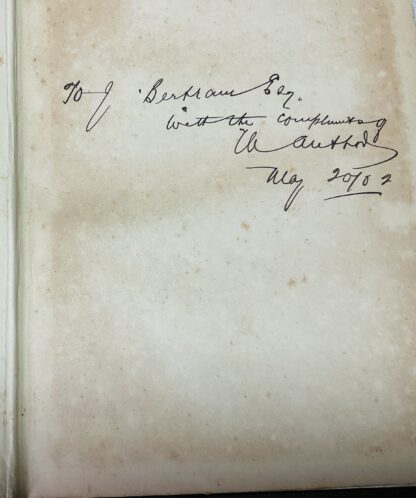 To J Bertram Esq.
With the compliments of
The Author
May 20/02